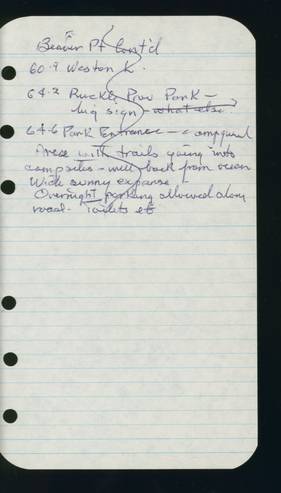 Beaver Pt Cont'd
60.9 Weston L.
64.2 Ruckle Prov Park -
big sign - what else
64.6 Park Entrance - campground
Area with trails going into
campsites - well back from ocean
Wide sunny expanse -
Overnight parking allowed along
road - toilets etc